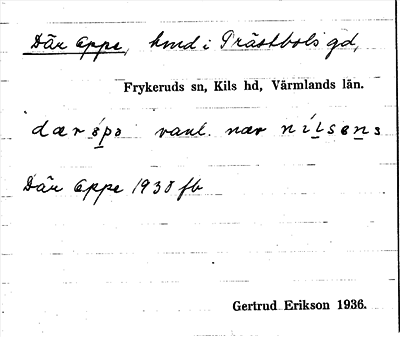 Där uppe, hmd i Prästbols gd,
Frykeruds sn, Kils hd, Värmlands län.
dær ɵpə vanl. nær nilsɵns
Där uppe 1938 fb
Gertrud Erikson 1936.